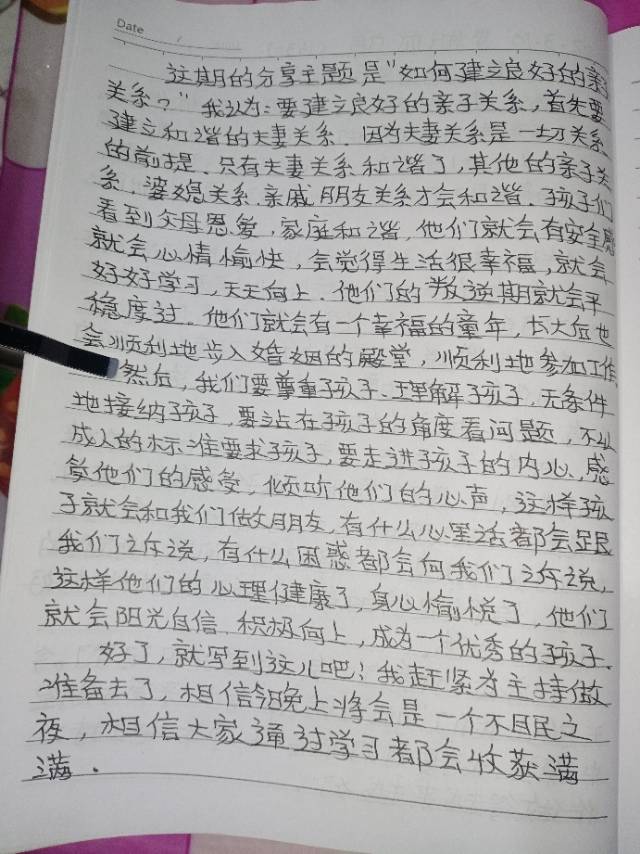 Date
这期的分享主题是“如何建立良好的亲子
关系？”我认为：要建立良好的亲子关系，首先要
建立和谐的夫妻关系．因为夫妻关系是一切关系
的前提．只有夫妻关系和谐了，其他的亲子关
系．婆媳关系．亲戚朋友关系才会和谐．孩子们
看到父母恩爱，家庭和谐，他们就会有安全感
就会心情愉快，会觉得生活很幸福，就会
好好学习，天天向上．他们的叛逆期就会平
稳度过．他们就会有一个幸福的童年，长大后也
会顺利地步入婚姻的殿堂，顺利地参加工作．
然后，我们要尊重孩子、理解孩子，无条件
地接纳孩子，要站在孩子的角度看问题，不以
成人的标准要求孩子，要走进孩子的内心，感
受他们的感受，倾听他们的心声，这样孩
子就会和我们做朋友，有什么心里话都会跟
我们诉说，有什么困惑都会向我们诉说，
这样他们的心理健康了，身心愉悦了，他们
就会阳光自信．积极向上，成为一个优秀的孩子．
好了，就写到这儿吧！我赶紧为主持做
准备去了，相信今晚上将会是一个不眠之
夜，相信大家通过学习都会收获满
满．